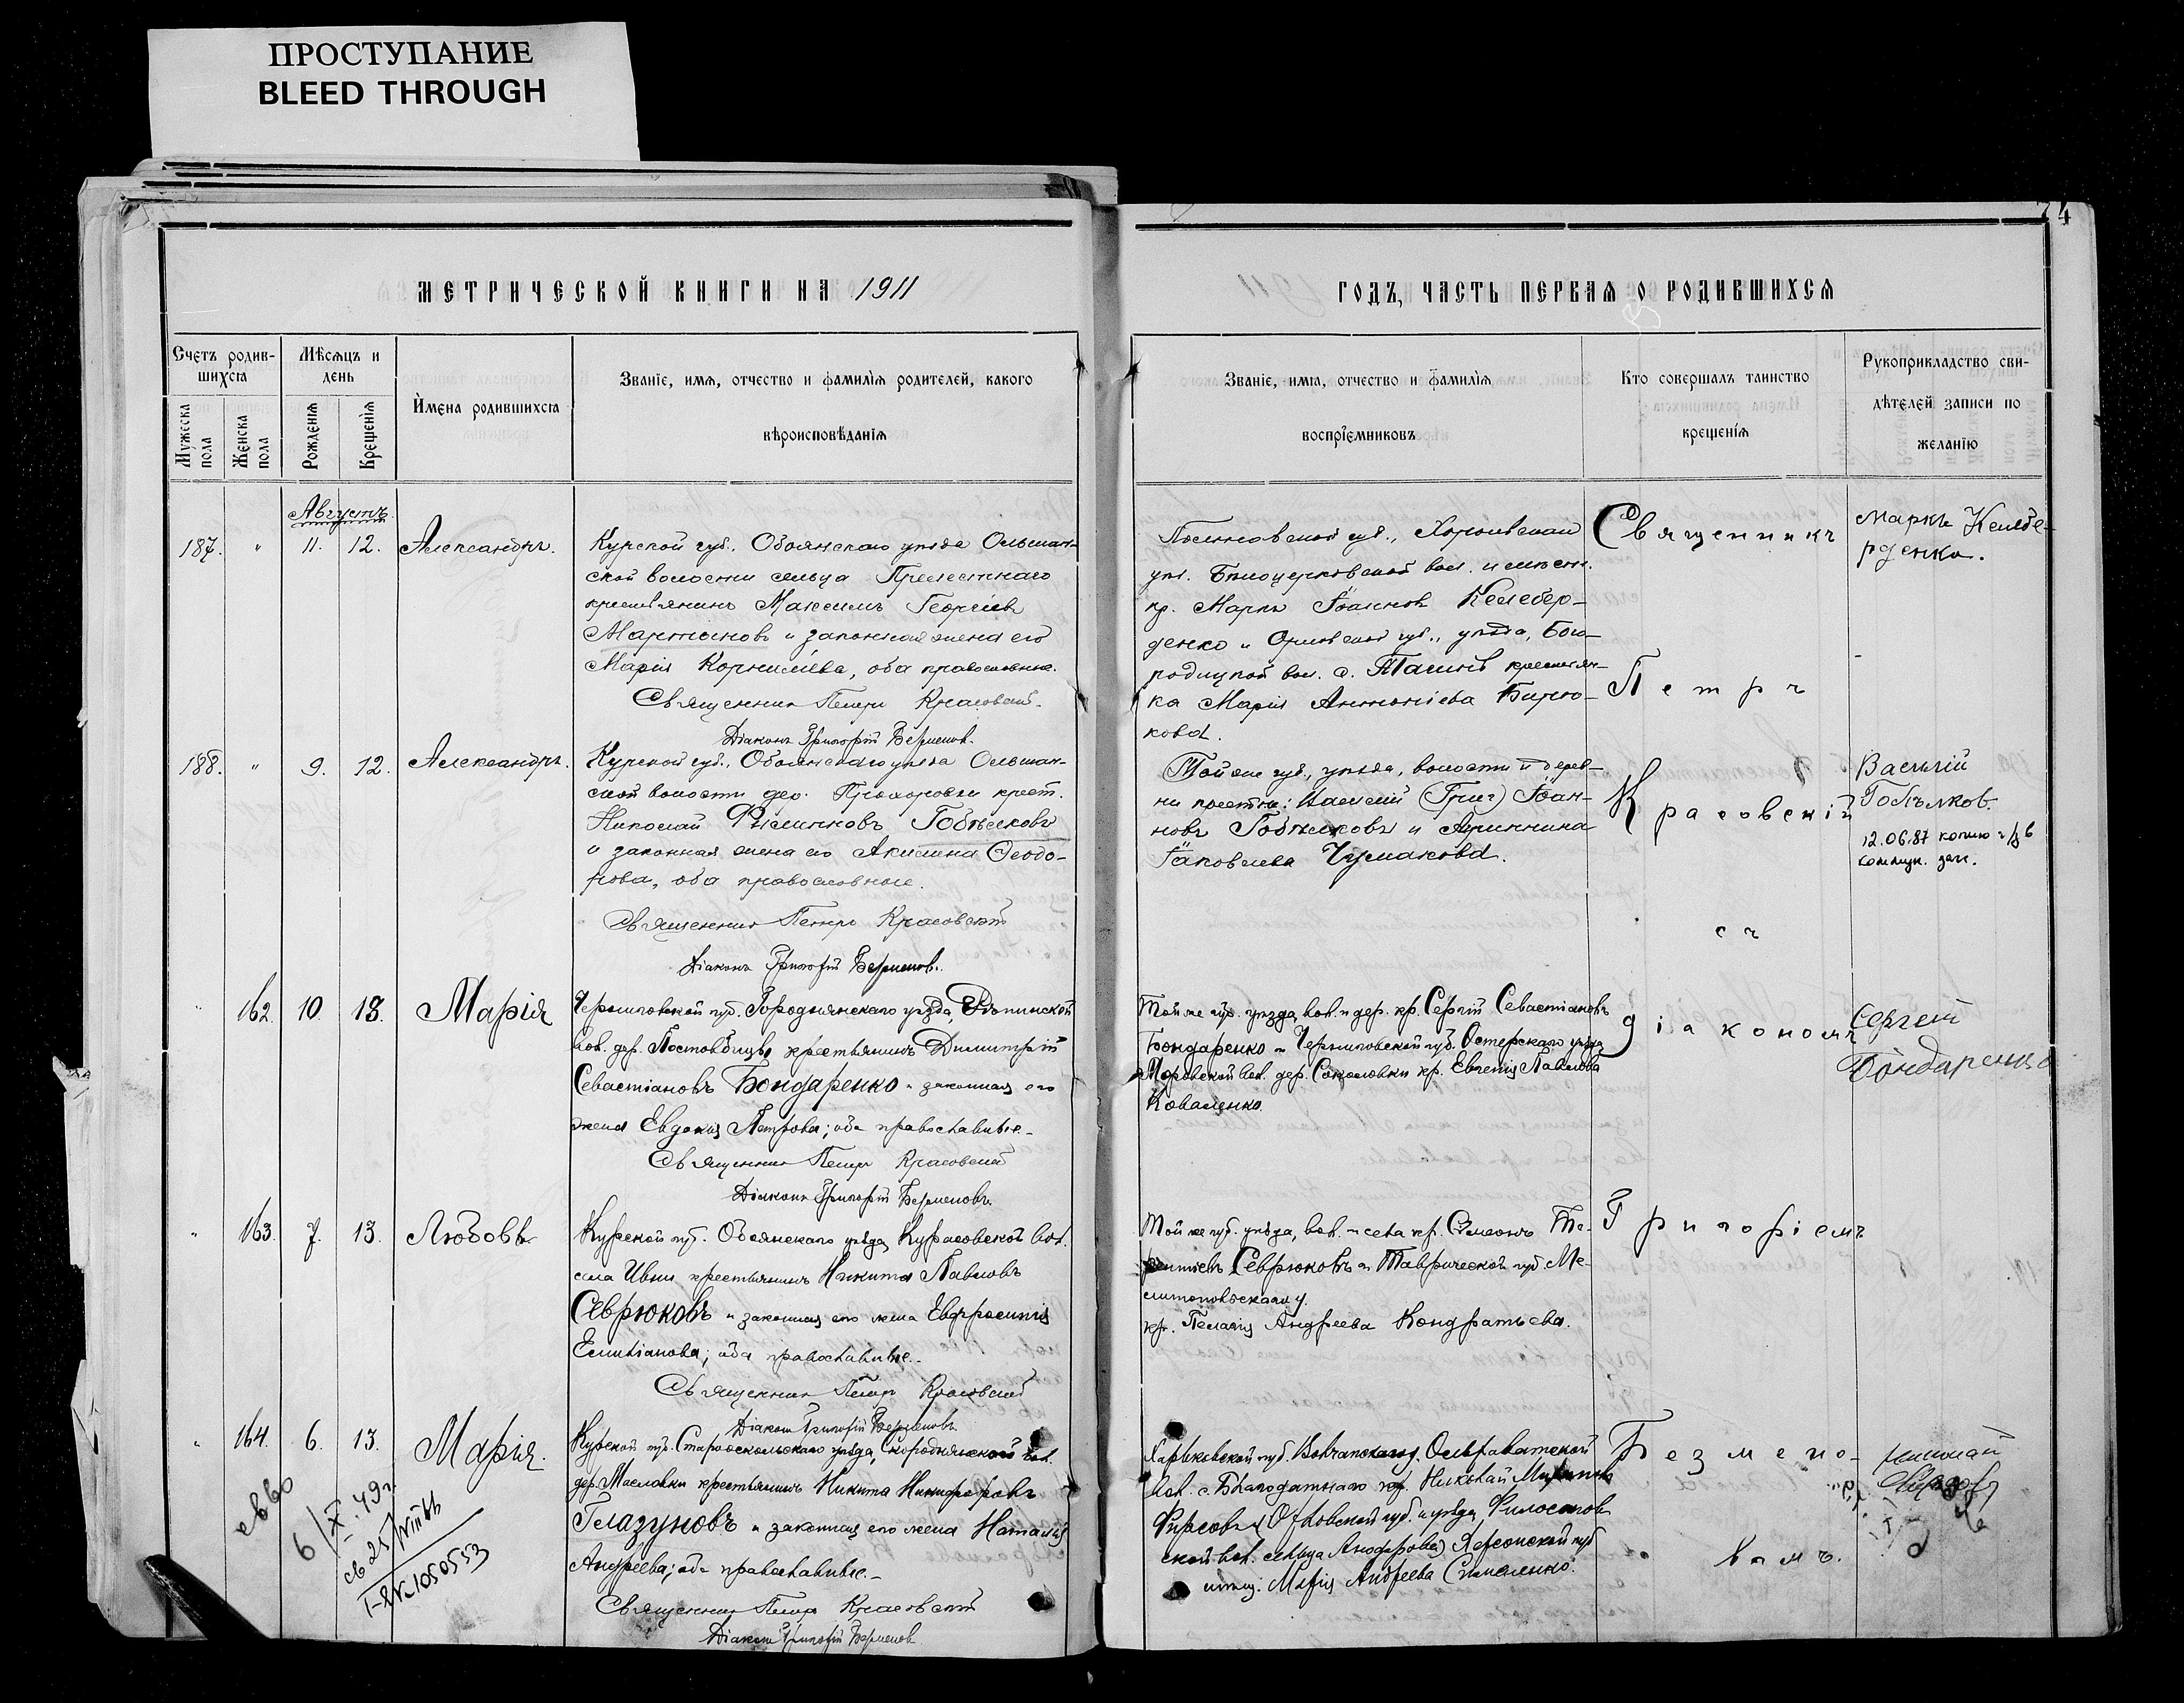 ПРОСТУПАНИЕ
BLEED THROUGH
74
МЕТРИЧЕСКОЙ КНИГИ НА 1911
ГОДЪ, ЧАСТЬ ПЕРВАЯ О РОДИВШИХСЯ
Счетъ родив-
шихся
Мужеска пола
Женска пола
Мѣсяцъ и
день
Рожденія
Крещенія
Имена родившихся
Званіе, имя, отчество и фамилія родителей, какого
вѣроисповѣданія
Званіе, имя, отчество и фамилія
воспріемниковъ
Кто совершалъ таинство
крещенія
Рукоприкладство сви-
дѣтелей записи по
желанію
Августъ.
187. " 11. 12. Александръ.
Курской губ., Обоянскаго уѣзда Ольшан-
ской волости сельца Прелестнаго
крестьянинъ Максимъ Георгіевъ
Мартыновъ и законная жена его
Марія Корниліева, оба православные.
Священникъ Петръ Красовскій.
Діаконъ Григорій
уѣз. Бѣлоцерковской вол. и
кр. Маркъ Іоанновъ Келебер-
денко и Орловской губ., уѣзда, Бого-
родицкой вол. д. крестьян-
ка Марія Антоніева Бирю-
кова.
Маркъ Келебе-
рденко.
188. " 9. 12. Александръ.
Курской губ., Обоянскаго уѣзда Ольшан-
ской волости дер. Прохоровки крест.
Николай Филипповъ Гобѣлковъ
и законная жена его Акилина Ѳеодо-
рова, оба православные.
Священникъ Петръ Красовскій
Діаконъ Григорій
Той же губ., уѣзда, волости и дерев-
ни крестне: Василий (Григ) Іоан-
новъ Гобѣлковъ и Агриппина
Іаковлева Чумакова.
Василій
Гобѣлков.
12.06.87
" 162. 10. 13. Марія
Черниговской губ. Городнянскаго уѣзда,
вол. дер. крестьянинъ Димитрій
Севастіановъ Бондаренко и законная его
жена Евдокія Петрова; оба православные.
Священникъ Петръ Красовскій
Діаконъ Григорій
Той же губ. уѣзда, вол. и дер. кр. Сергій Севастіановъ
Бондаренко и Черниговской губ. Остерскаго уѣзда
Моровской вол. дер. Соколовки кр. Евгенія Павлова
Коваленко.
Сергей
Бондаренко
" 163. 7. 13. Любовь
Курской губ. Обоянскаго уѣзда, Курасовской вол.
села Ивни крестьянинъ Никита Павловъ
Севрюковъ и законная его жена Евфросинія
Емиліанова; оба православные.
Священникъ Петръ Красовскій
Діаконъ Григорій
Той же губ. уѣзда, вол. и села кр. Симеонъ Те-
рентіевъ Севрюковъ и Таврической губ. Ме-
литопольскаго у.
кр. Пелагія Андреева Кондратьева.
" 164. 6. 13. Марія.
Курской губ. Старооскольскаго уѣзда, Скороднянской вол.
дер. Масловки крестьянинъ Никита Никифоровъ
Глазуновъ и законная его жена Наталія
Андреева; оба православные.
Священникъ Петръ Красовскій
Діаконъ Григорій
Харьковской губ. Волчанскаго у. Ольховатской
вол. с. Благодатнаго кр. Николай
Фирсовъ Орловской губ. и уѣзда,
Херсонской губ
мѣщ. Марія Андреева
Николай
Священникъ
Петръ
Красовскій
съ
діакономъ
Григоріемъ
вымъ.
6/X.49г.
I-ЯК 1050553